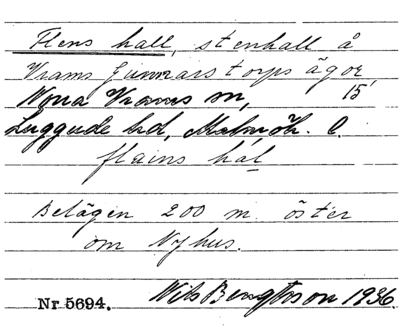 Flens hall, stenhall å
Vrams Gunnarstorps ägor,
Norra Vrams sn, 15
Luggude hd, Malmöh. l.
flains hal
Belägen 200 m öster
om Nyhus.
Nr 5694. Nils Bengtsson 1936.